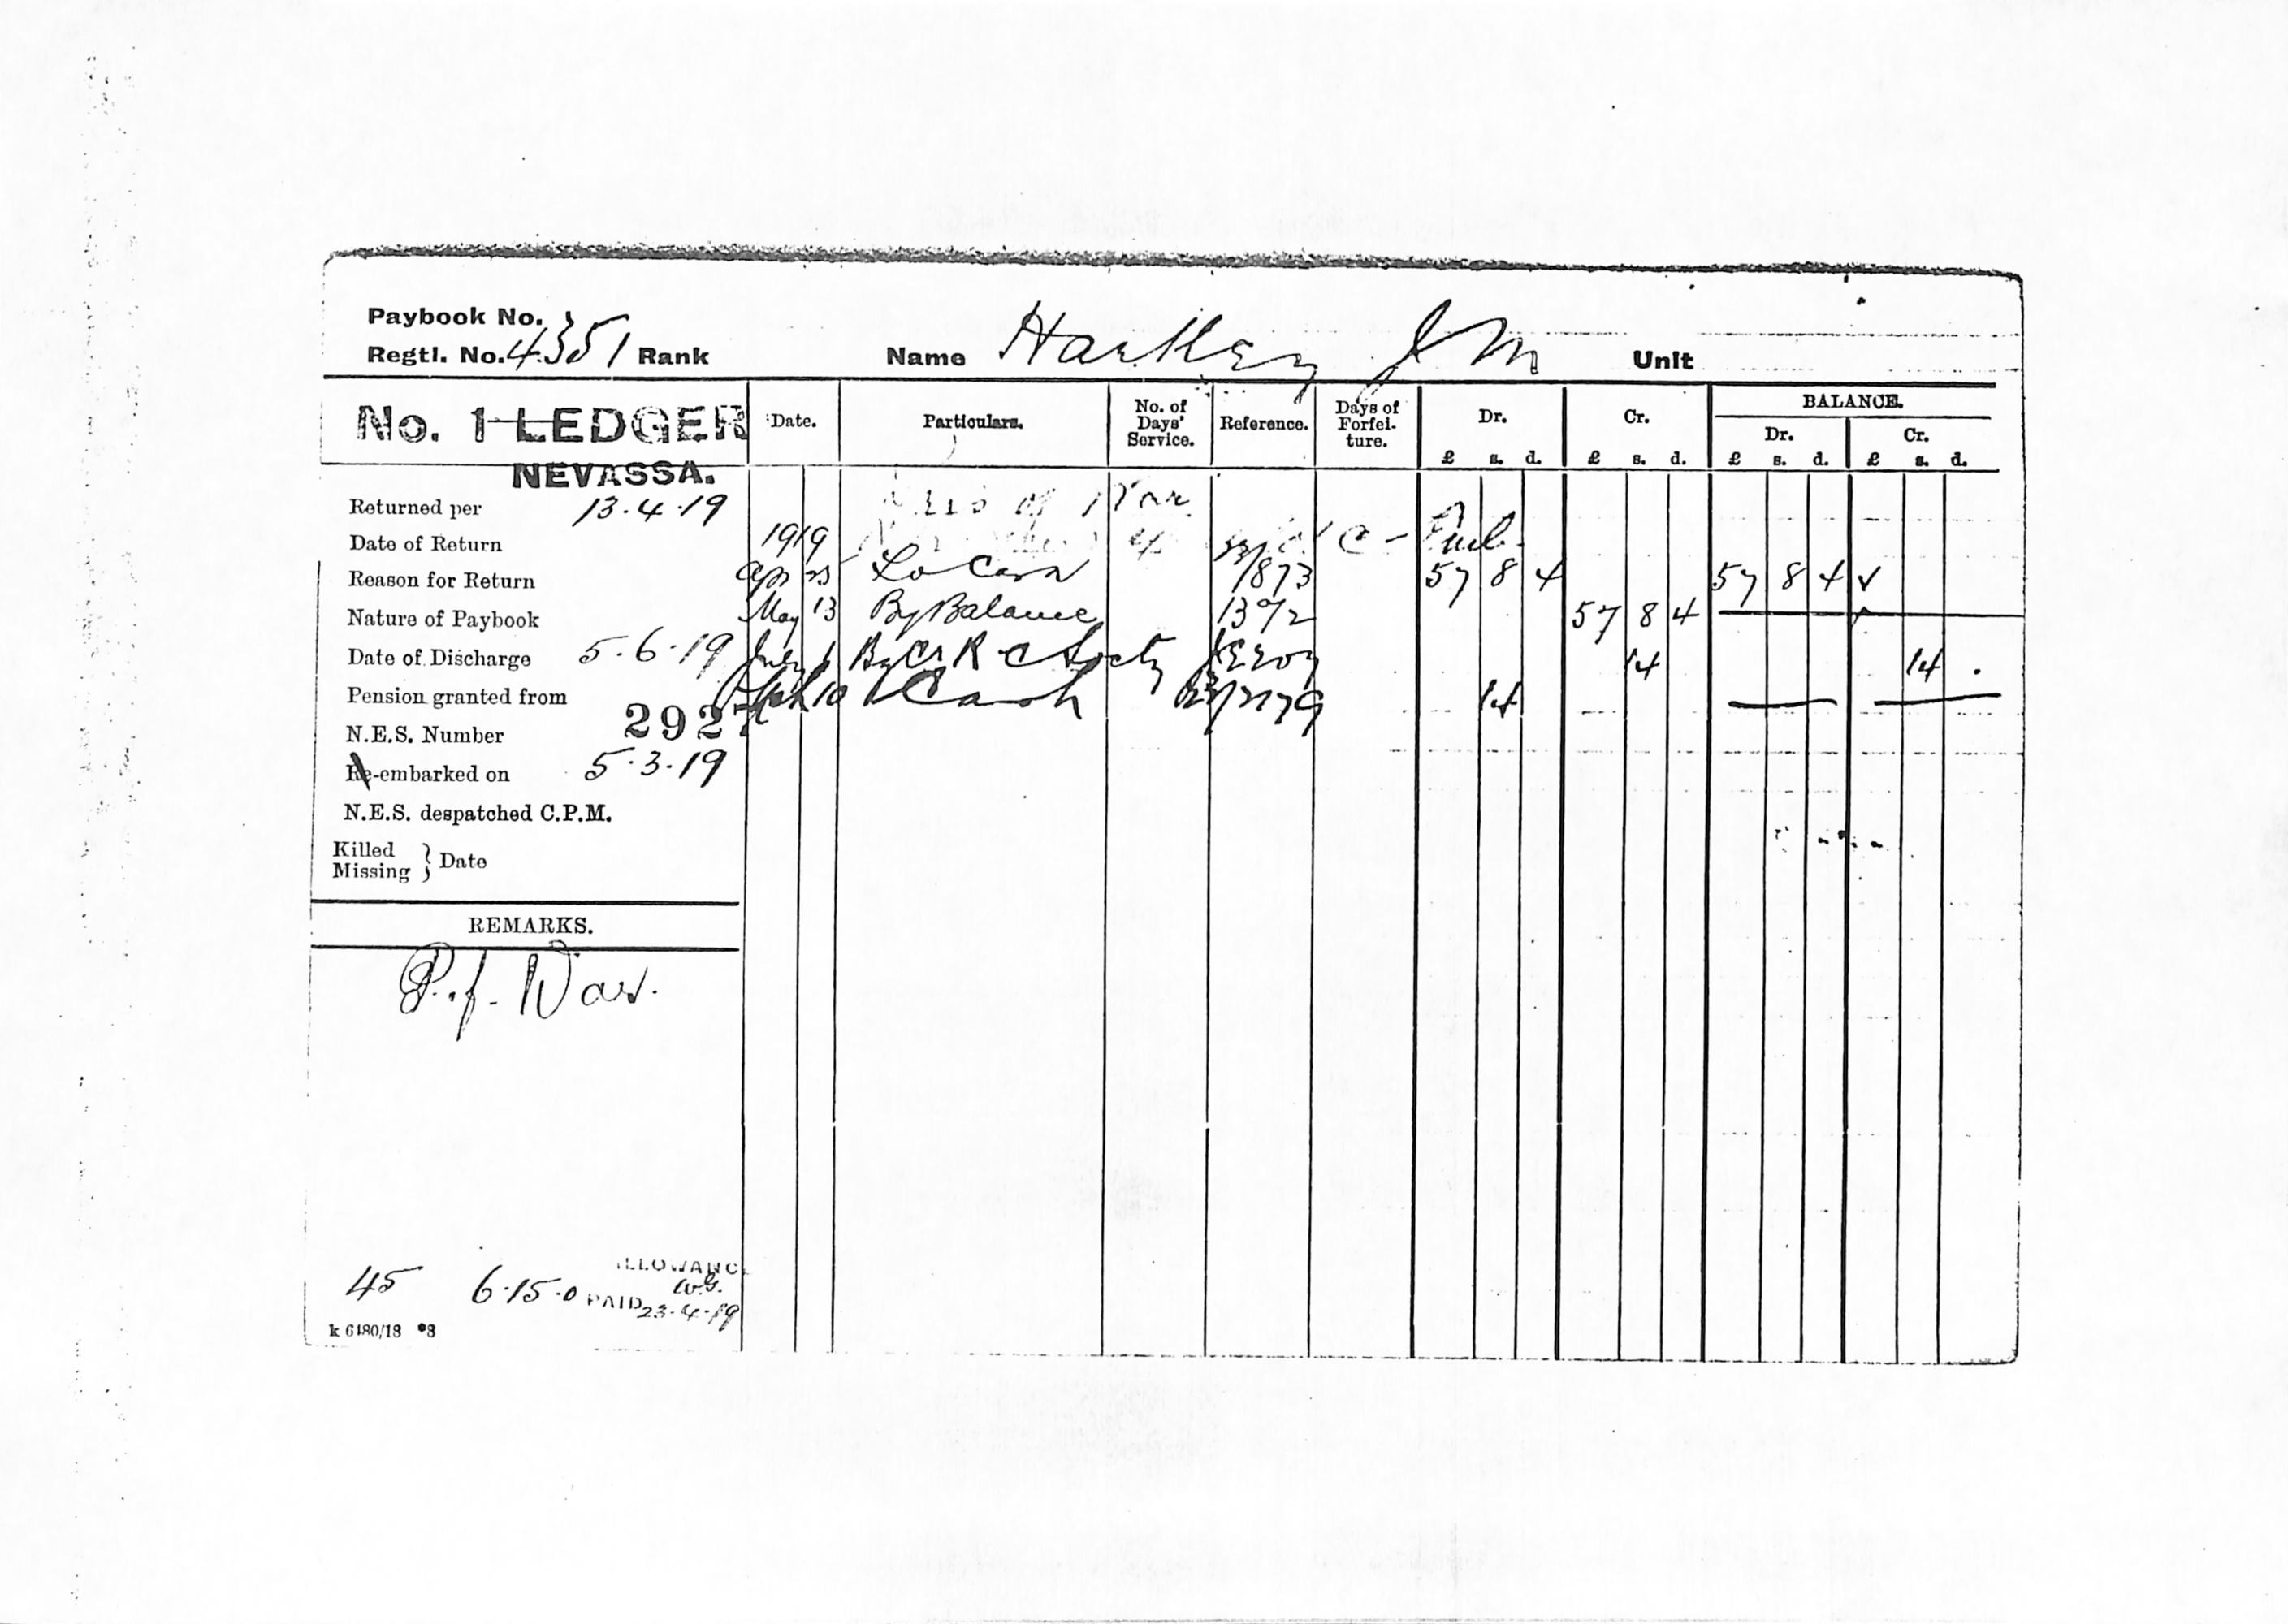 Paybook No.
Regtl. No. 4351 Rank Name Hartley J M Unit
No. 1 LEDGER Date. Particulars. No. of Days' Service. Reference. Days of Forfei- ture. Dr. Cr. BALANCE.
Dr. Cr.
£ s. d. £ s. d. £ s. d. £ s. d.
NEVASSA.
Returned per 13.4.19 of War
Date of Return 1919
Reason for Return Apr 23 To Cash /873 57 8 4 57 8 4
Nature of Paybook May 13 By Balance 1392 57 8 4
Date of Discharge 5.6.19 By 14 14 .
Pension granted from 10 Cash 14
N.E.S. Number 292
Re-embarked on 5.3.19
N.E.S. despatched C.P.M.
Killed
Missing } Date
REMARKS.
P. of War.
45 6.15.0 PAID 23-4-19
k 6480/18 *8